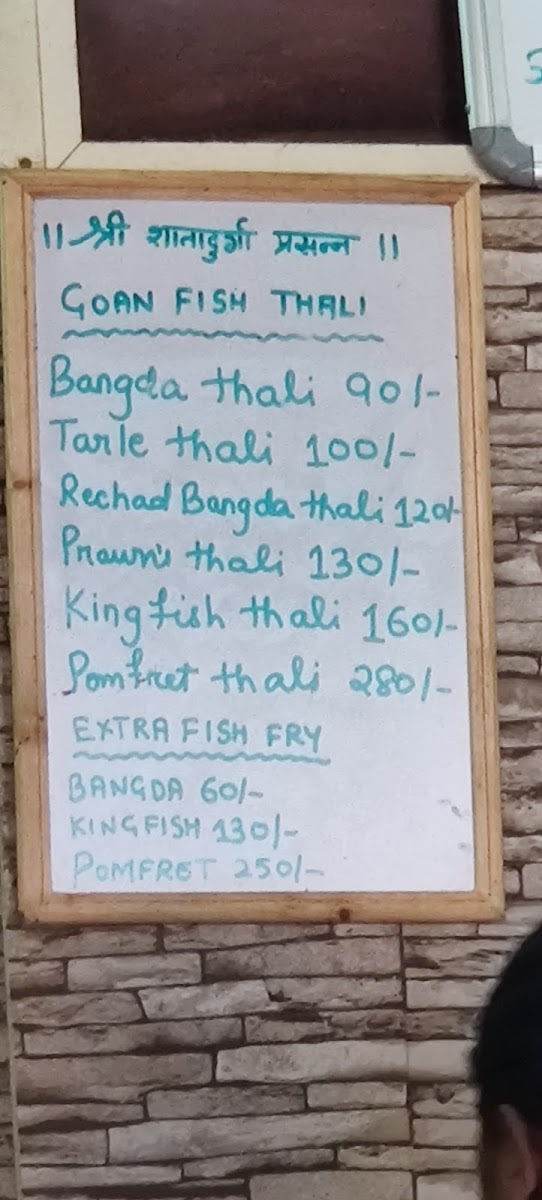 ॥ श्री शातादुर्गा प्रसन्न ॥
GOAN FISH THALI
Bangda thali 90/-
Tarle thali 100/-
Rechad Bangda thali 120/-
Prawn's thali 130/-
King fish thali 160/-
Pomfret thali 280/-
EXTRA FISH FRY
BANGDA 60/-
KINGFISH 130/-
POMFRET 250/-